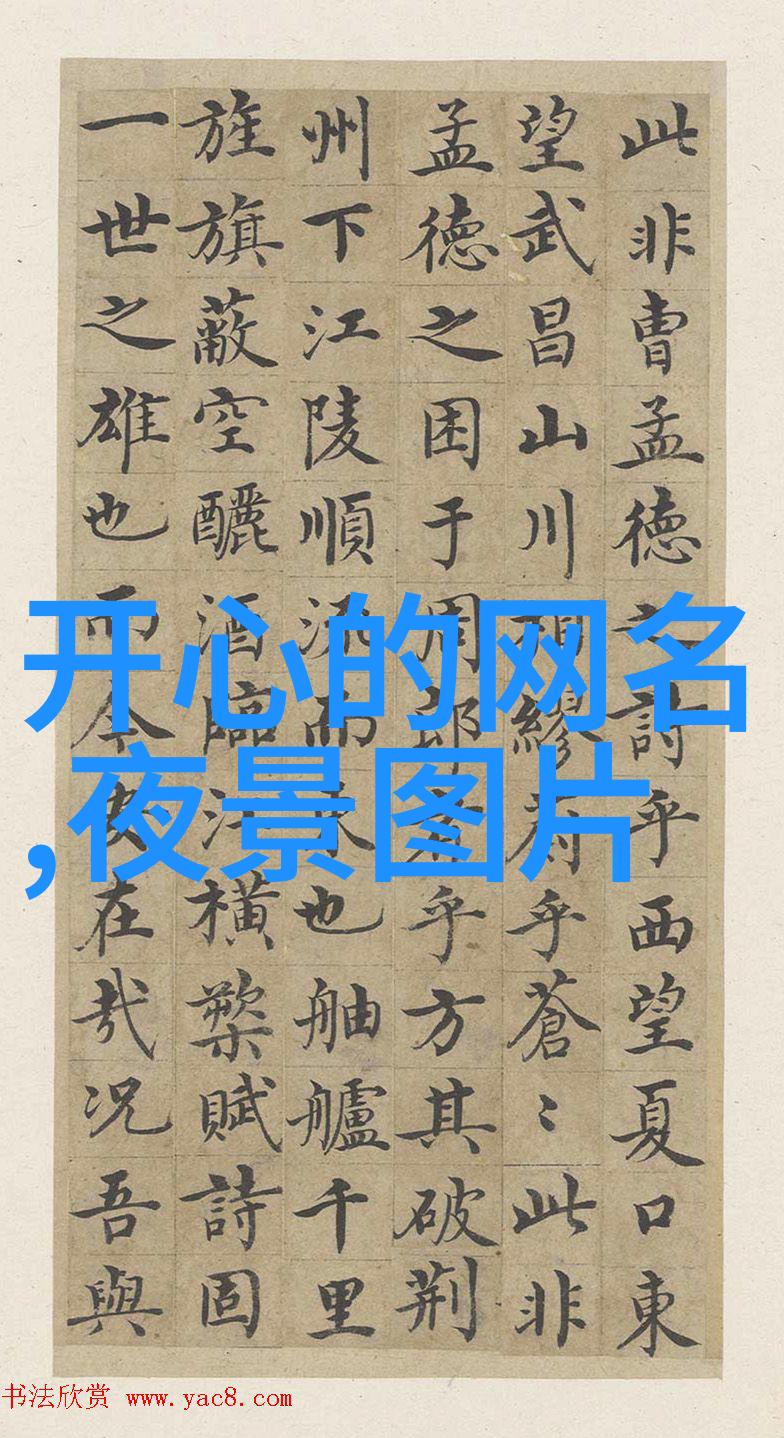 此非曹孟德之詩乎西望夏口東
望武昌山川相繆蔚乎蒼〻此非
孟德之困于周郎者乎方其破荆
州下江陵順流而東也舳艫千里
旌旗蔽空釃酒臨江橫槊賦詩固
一世之雄也而今安在哉况吾與
开心的网名
,夜景图片
书法欣赏 www.yac8.com